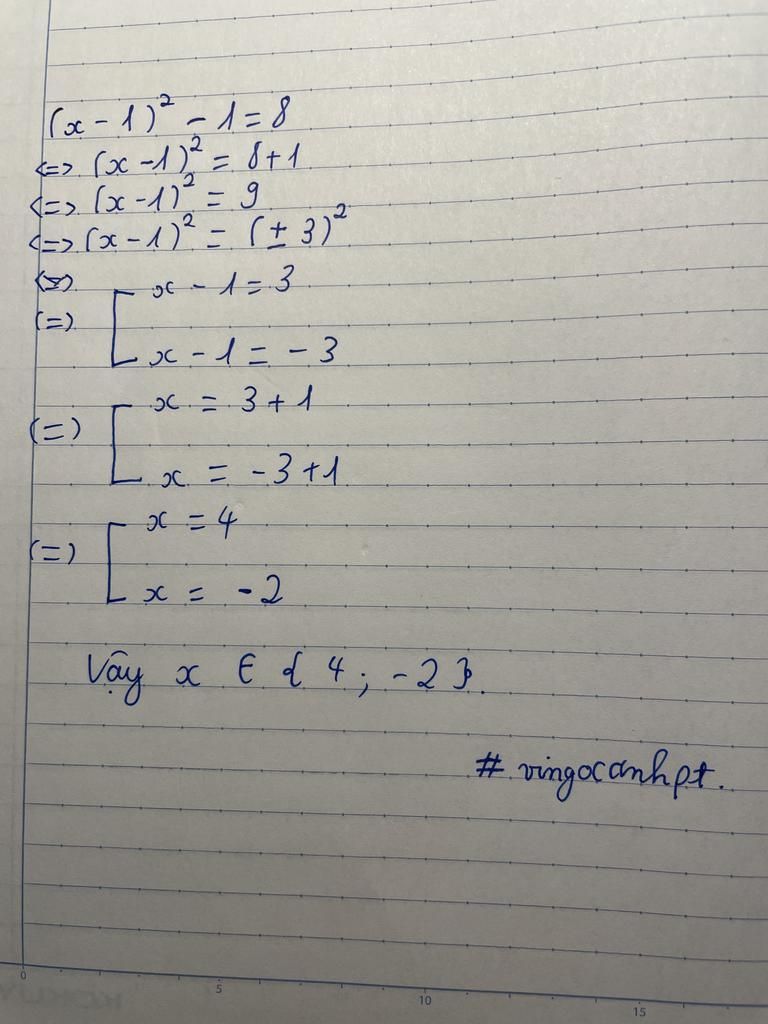 (x - 1)² - 1 = 8
<=> (x - 1)² = 8 + 1
<=> (x - 1)² = 9
<=> (x - 1)² = (± 3)²
x - 1 = 3
(=)
x - 1 = - 3
x = 3 + 1
(=)
x = -3 + 1
x = 4
(=)
x = - 2
Vậy x ∈ { 4 ; - 2 }.
# vingocanhpt.
0 5 10 15